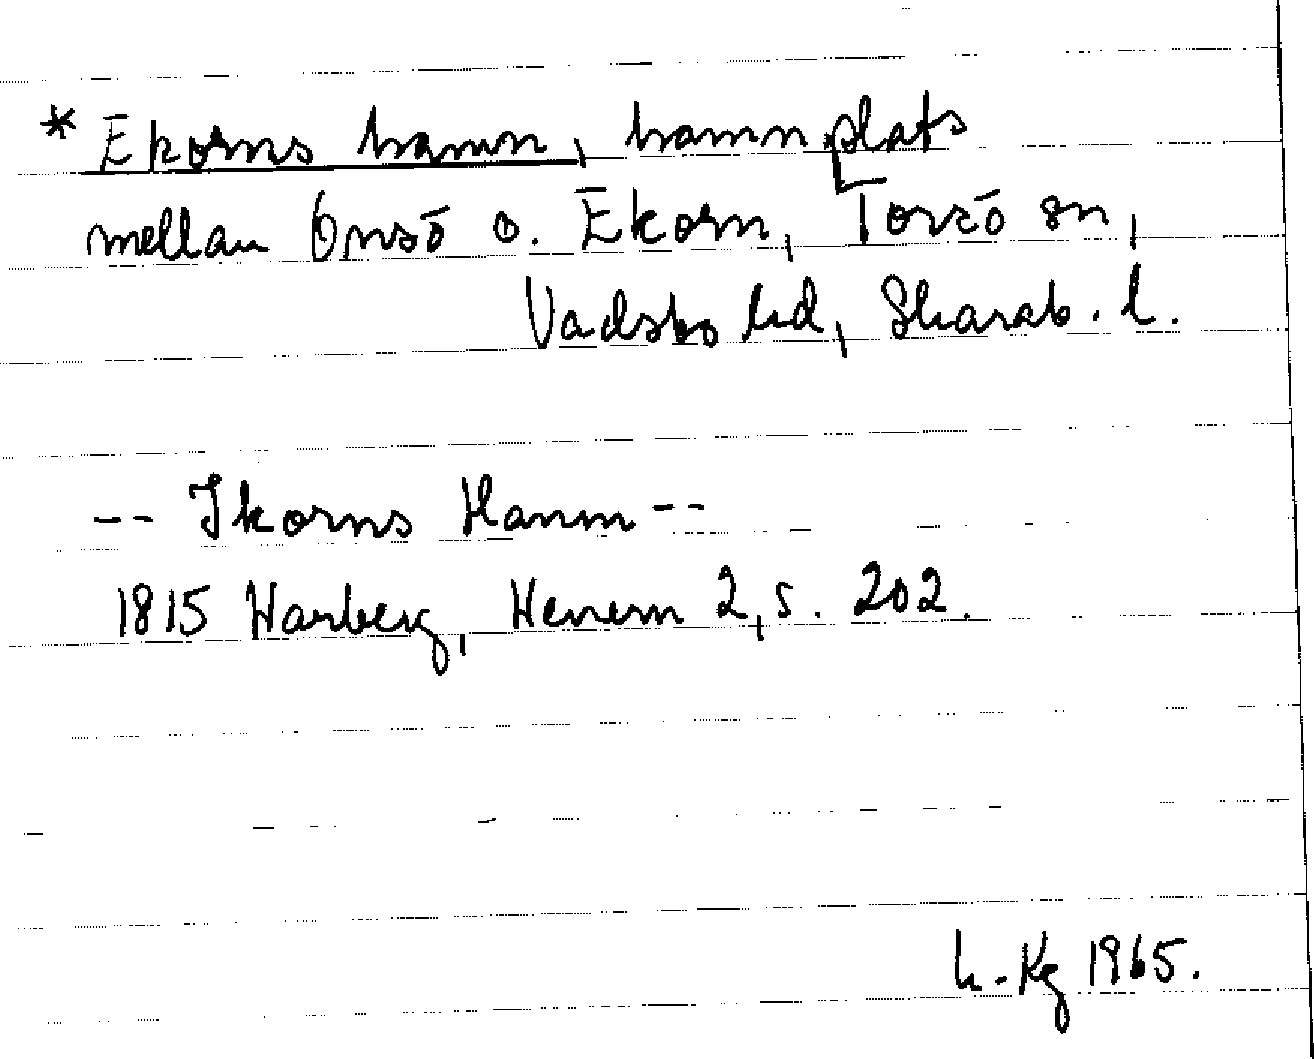 * Ekorns hamn, hamnplats
mellan Onsö o. Ekorn, Torsö sn,
Vadsbo hd, Skarab. l.
-- Ikorns Hamn --
1815 Warberg, Wenern 2, s. 202.
L. Kg 1965.